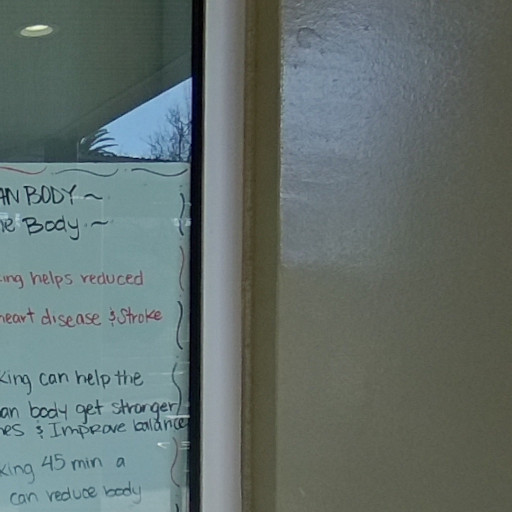 AN BODY ~
e Body ~
ing helps reduced
heart disease & Stroke
king can help the
an body get stronger
nes & Improve balance
king 45 min a
can reduce body